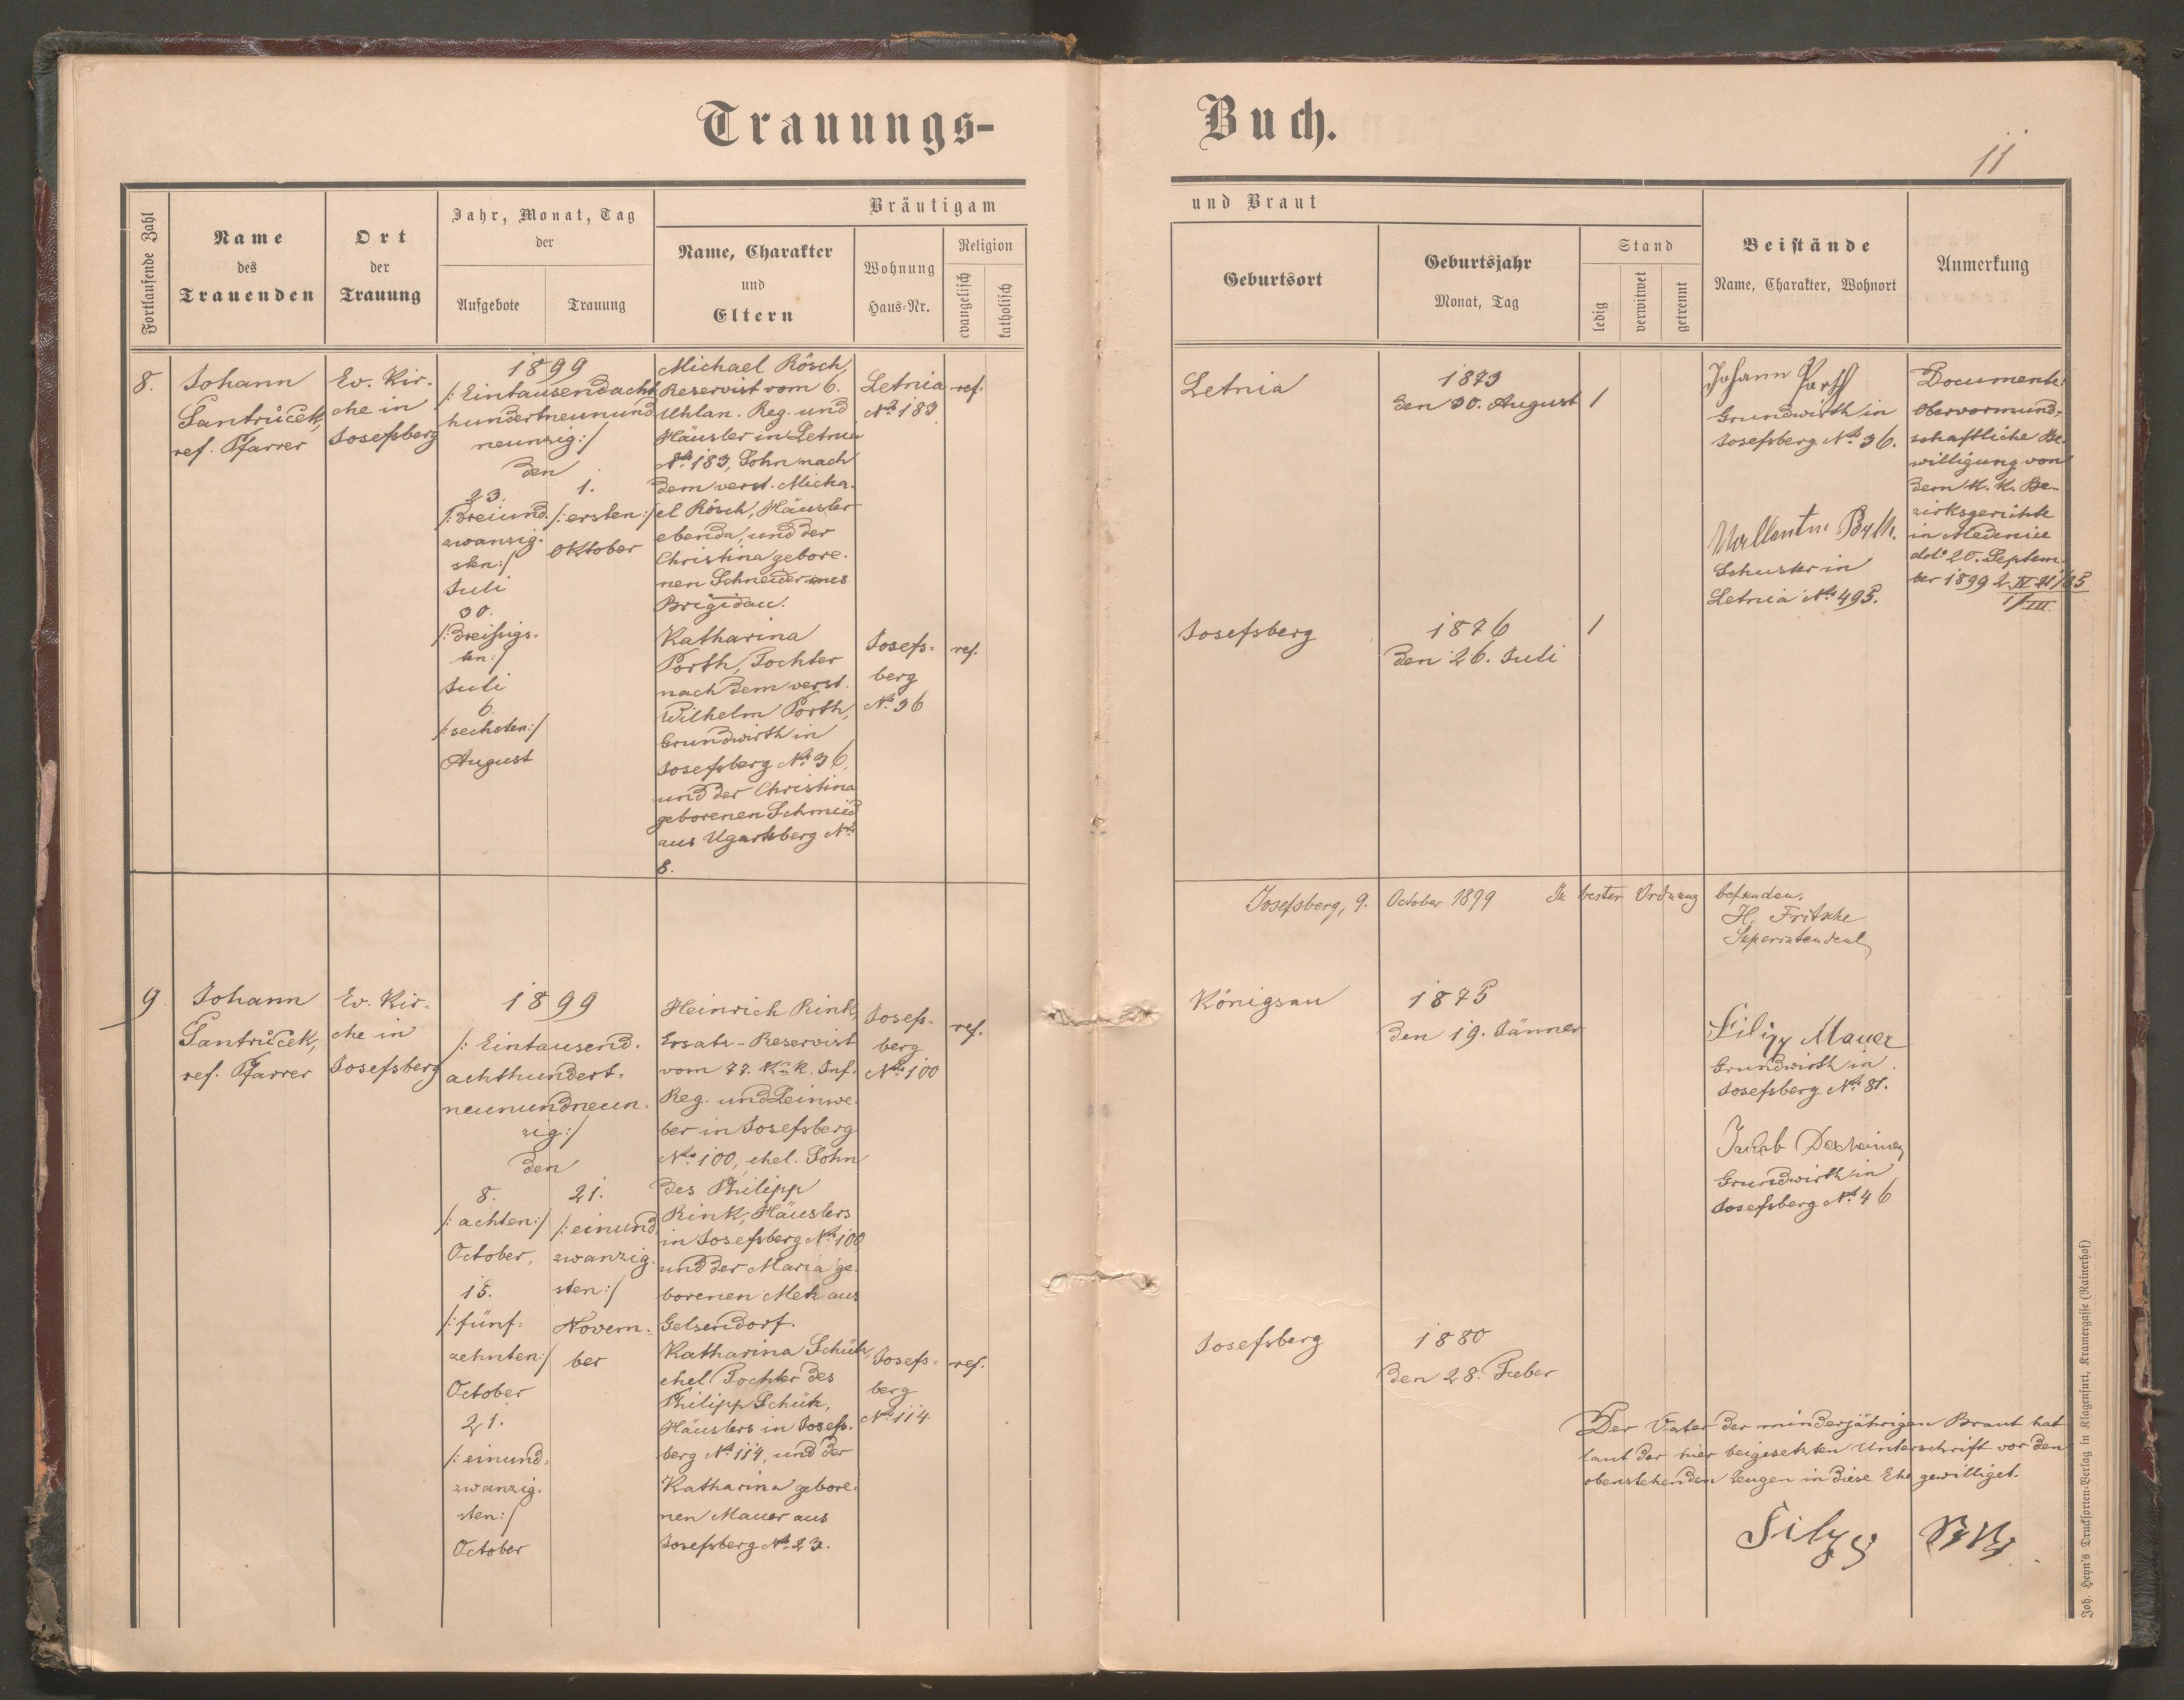 Trauungs-
Buch.
11
Fortlaufende Zahl
Name
des
Trauenden
Ort
der
Trauung
Jahr, Monat, Tag
der
Aufgebote
Trauung
Bräutigam
Name, Charakter
und
Eltern
Wohnung
Haus-Nr.
Religion
evangelisch
katholisch
und Braut
Geburtsort
Geburtsjahr
Monat, Tag
Stand
ledig
verwitwet
getrennt
Beistände
Name, Charakter, Wohnort
Anmerkung
8.
Johann
Santrůček,
ref. Pfarrer
Ev. Kir-
che in
Josefsberg
1899
/: Eintausendacht
hundertneunund
neunzig :/
den
23.
/: dreiund-
zwanzig-
sten :/
Juli
30.
/: dreißigs-
ten :/
Juli
6.
/: sechsten :/
August
1.
/: ersten :/
Oktober
Michael Rösch,
Reservist vom 6.
Uhlan. Reg. und
Häusler in Letnia
No. 183, Sohn nach
dem verst. Micha-
el Rösch, Häusler
ebenda, und der
Christina gebore-
nen Schneider aus
Brigidau.
Letnia
No 183
ref.
Katharina
Porth, Tochter
nach dem verst.
Wilhelm Porth,
Grundwirth in
Josefsberg No. 36,
und der Christina
geborenen Schmied
aus Ugartsberg No.
8.
Josefs-
berg
No. 36
ref.
Letnia
1873
den 30. August
1
Josefsberg
1876
den 26. Juli
1
Johann Porth
Grundwirth in
Josefsberg No. 36.
Schuster in
Letnia No. 495.
Documente:
Obervormund-
schaftliche Be-
willigung von
dem k. k. Be-
zirksgerichte
in Medenice
ddo. 20. Septem-
ber 1899
Josefsberg, 9. October 1899 In bester Ordnung befunden.
H. Fritsche
Superintendent
9
Johann
Santrůček,
ref. Pfarrer
Ev. Kir-
che in
Josefsberg
1899
/: Eintausend-
achthundert-
neunundneun-
zig :/
den
8.
/: achten :/
October,
15.
/: fünf-
zehnten :/
October
21.
/: einund-
zwanzig-
sten :/
October
21.
/: einund
zwanzig-
sten :/
Novem-
ber
Heinrich Rink,
Ersatz-Reservist
vom 77. k. k. Inf.
Reg. und Leinwe-
ber in Josefsberg
No. 100, ehel. Sohn
des Philipp
Rink, Häuslers
in Josefsberg No. 100
und der Maria ge-
borenen Metz aus
Gelsendorf.
Josefs-
berg
No. 100
ref.
Katharina Schütz,
ehel. Tochter des
Philipp Schütz,
Häuslers in Josefs-
berg No. 114, und der
Katharina gebore-
nen Mauer aus
Josefsberg No. 23.
Josefs-
berg
No. 114.
ref.
Königsau
1875
den 19. Jänner
Josefsberg
1880
den 28. Feber
Filipp Mauer
Grundwirth in
Josefsberg No. 81.
Jakob
Grundwirth in
Josefsberg No. 46
Der Vater der minderjährigen Braut hat
laut der hier beigesetzten Unterschrift vor den
obenstehenden Zeugen in diese Ehe gewilliget.
Joh. Heyn's Drucksorten-Verlag in Klagenfurt, Kramergasse (Rainerhof)